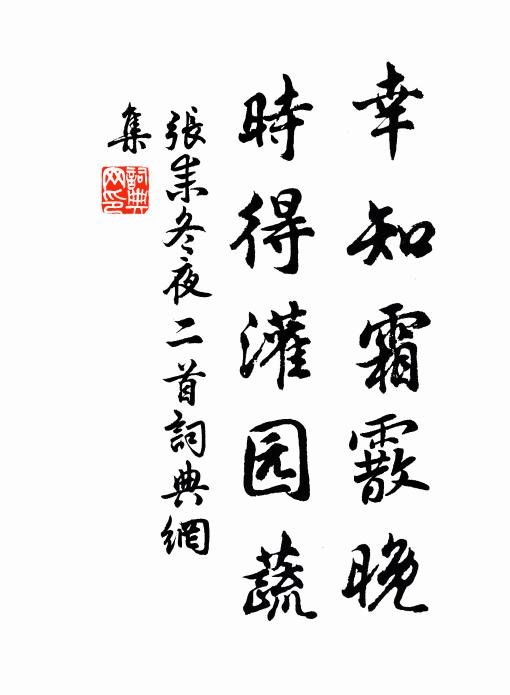 幸知霜霰晚
時得灌园蔬
張耒冬夜二首詞典網
集
詞典
网印